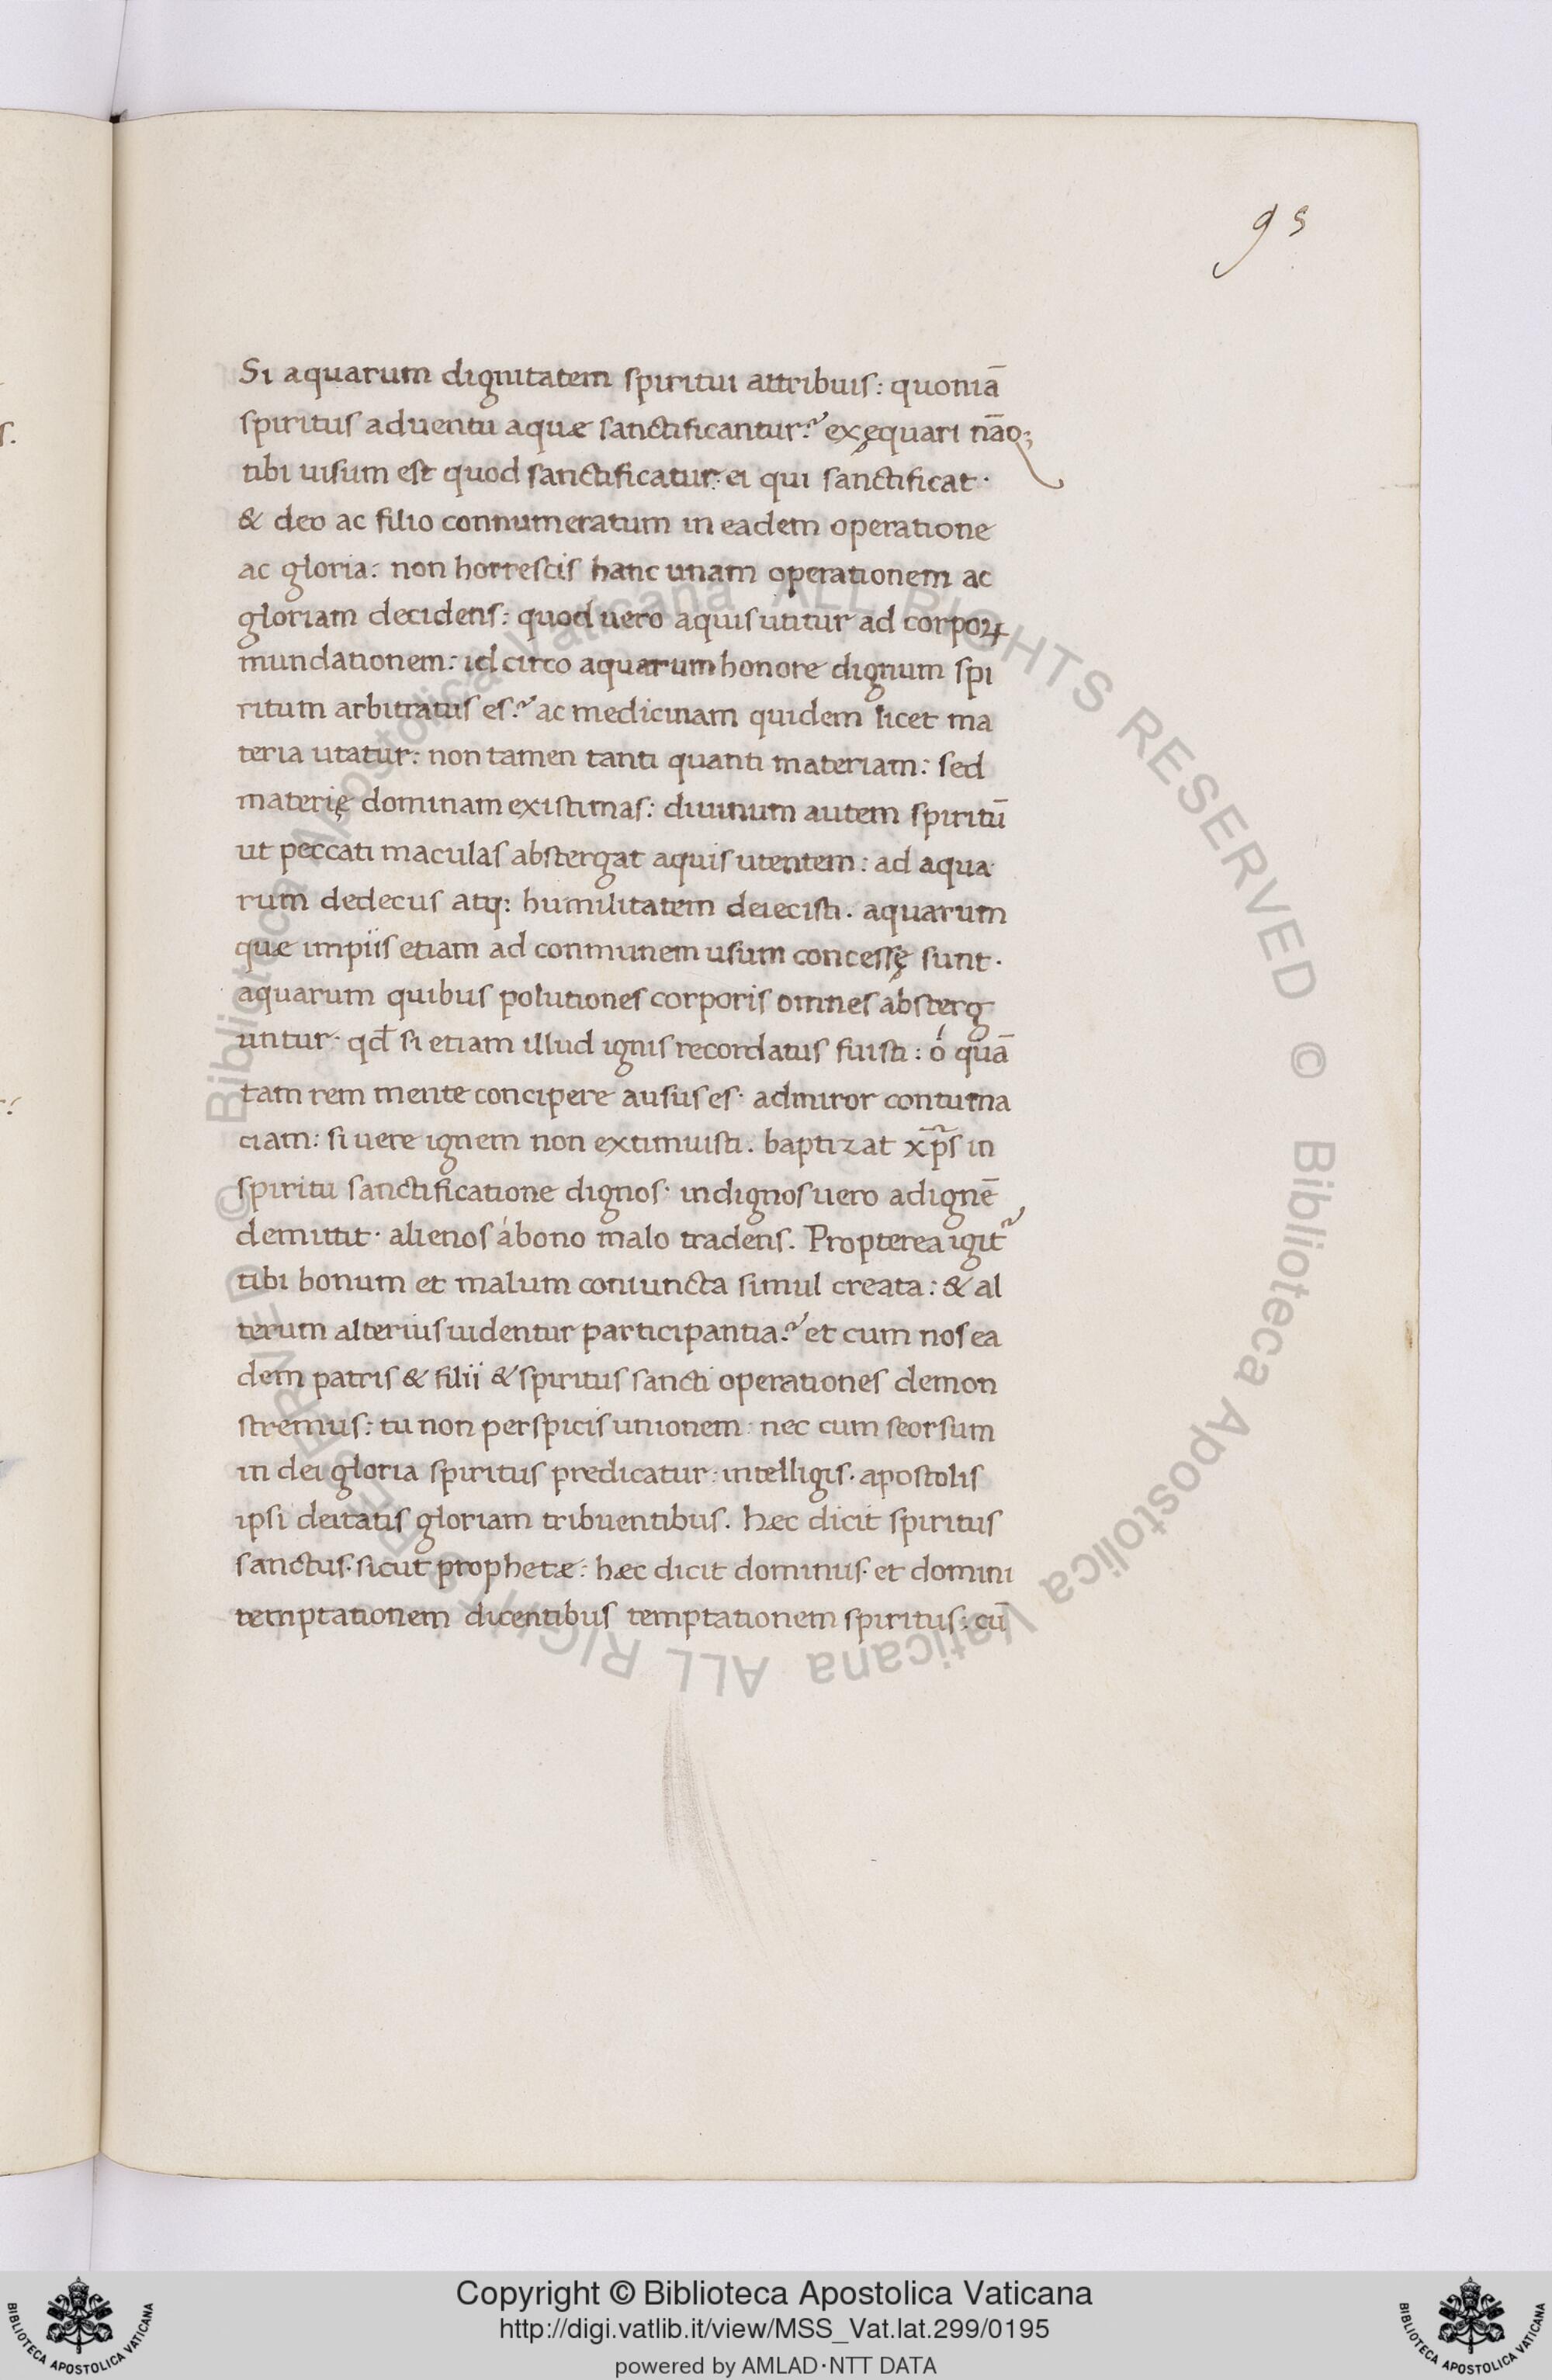 95
Si aquarum dignitatem spiritui attribuis: quoniā
spiritus aduentu aquæ sanctificantur? exęquari nāq;
tibi uisum est quod sanctificatur: ei qui sanctificat·
& deo ac filio connumeratum in eadem operatione
ac gloria: non horrescis hanc unam operationem ac
gloriam decidens: quod uero aquis utitur ad corpoꝝ
mundationem: id circo aquarum honore dignum spi
ritum arbitratus es? ac medicinam quidem licet ma
teria utatur: non tamen tanti quanti materiam: sed
materię dominam existimas: diuinum autem spiritū
ut peccati maculas abstergat aquis utentem: ad aqua
rum dedecus atq: humilitatem deiecisti. aquarum
quæ impiis etiam ad conmunem usum concessę sunt·
aquarum quibus polutiones corporis omnes absterg
untur· qđ si etiam illud ignis recordatus fuisti: ó quā
tam rem mente concipere ausus es· admiror contuma
ciam: si uere ignem non extimuisti. baptizat xp̄s in
spiritu sanctificatione dignos· indignos uero ad ignē
demittit· alienos á bono malo tradens. Propterea igit᷑
tibi bonum et malum coniuncta simul creata: & al
terum alterius uidentur participantia? et cum nos ea
dem patris & filii & spiritus sancti operationes demon
stremus: tu non perspicis unionem: nec cum seorsum
in dei gloria spiritus predicatur: intelligis· apostolis
ipsi deitatis gloriam tribuentibus. hæc dicit spiritus
sanctus· sicut prophetæ: hæc dicit dominus· et domini
temptationem dicentibus temptationem spiritus: cū
© Biblioteca Apostolica Vaticana ALL RIGHTS RESERVED
© Biblioteca Apostolica Vaticana ALL RIGHTS RESERVED
Copyright © Biblioteca Apostolica Vaticana
http://digi.vatlib.it/view/MSS_Vat.lat.299/0195
powered by AMLAD·NTT DATA
BIBLIOTECA APOSTOLICA VATICANA
BIBLIOTECA APOSTOLICA VATICANA